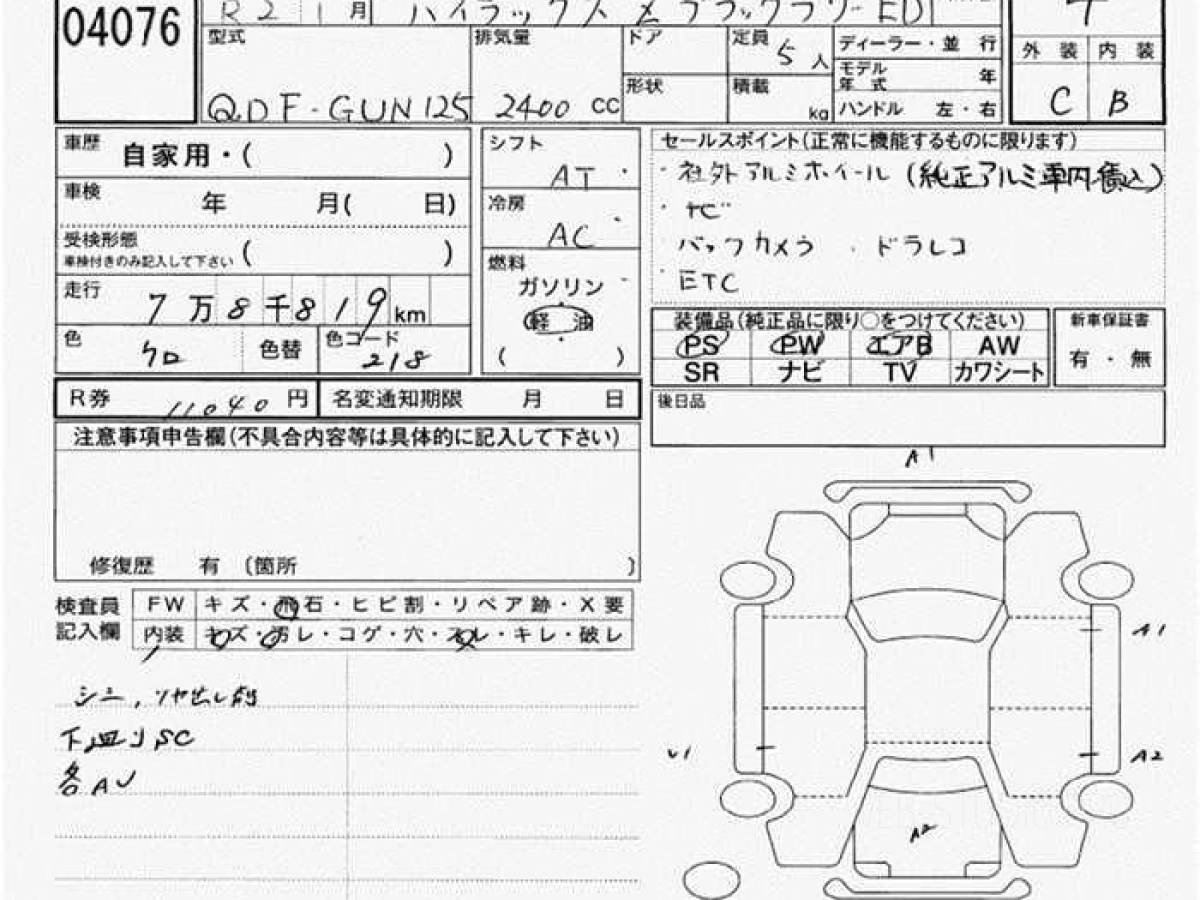 04076 R2 1月 ハイラックス Z ブラックラリーED
型式 排気量 ドア 定員 5人 ディーラー・並行
モデル年式 年 外装 内装
QDF-GUN125 2400 cc 形状 積載 kg ハンドル 左・右 C B
車歴 自家用・( )
車検 年 月( 日)
受検形態 車検付きのみ記入して下さい ( )
走行 7万8千819km
色 クロ 色替 色コード 218
シフト AT
冷房 AC
燃料 ガソリン
軽油
( )
セールスポイント(正常に機能するものに限ります)
・社外アルミホイール(純正アルミ車内積込)
・ナビ
・バックカメラ・ドラレコ
・ETC
装備品(純正品に限り○をつけてください) 新車保証書
PS PW エアB AW 有・無
SR ナビ TV カワシート
R券 11040円 名変通知期限 月 日
後日品
注意事項申告欄(不具合内容等は具体的に記入して下さい)
修復歴 有 (箇所 )
検査員記入欄 FW キズ・飛石・ヒビ割・リペア跡・X要
内装 キズ・汚レ・コゲ・穴・スレ・キレ・破レ
下廻りSC
各AU
A1
A1
U1 A2
A2